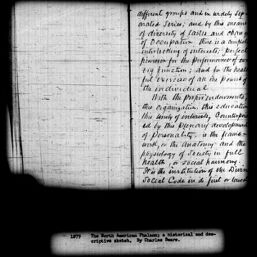 different groups and in widely sep-
arated Series; and by this means
of diversity of tastes and change
of Occupation there is an ample
interlocking of interests; the best
provision for the performance of ev-
ery function; and for the health-
ful exercise of all the powers of
the individual.
With the proper endowments,
this organization, this education
this unity of interests, Counterpois-
ed by this plenary development
of Personality, is the frame-
work, or the Anatomy and the
physiology of Society in full
health, or social harmony.
It is the institution of the Divine
Social Code in its full or
1879 The North American Phalanx; a historical and des-
criptive sketch, By Charles Sears.